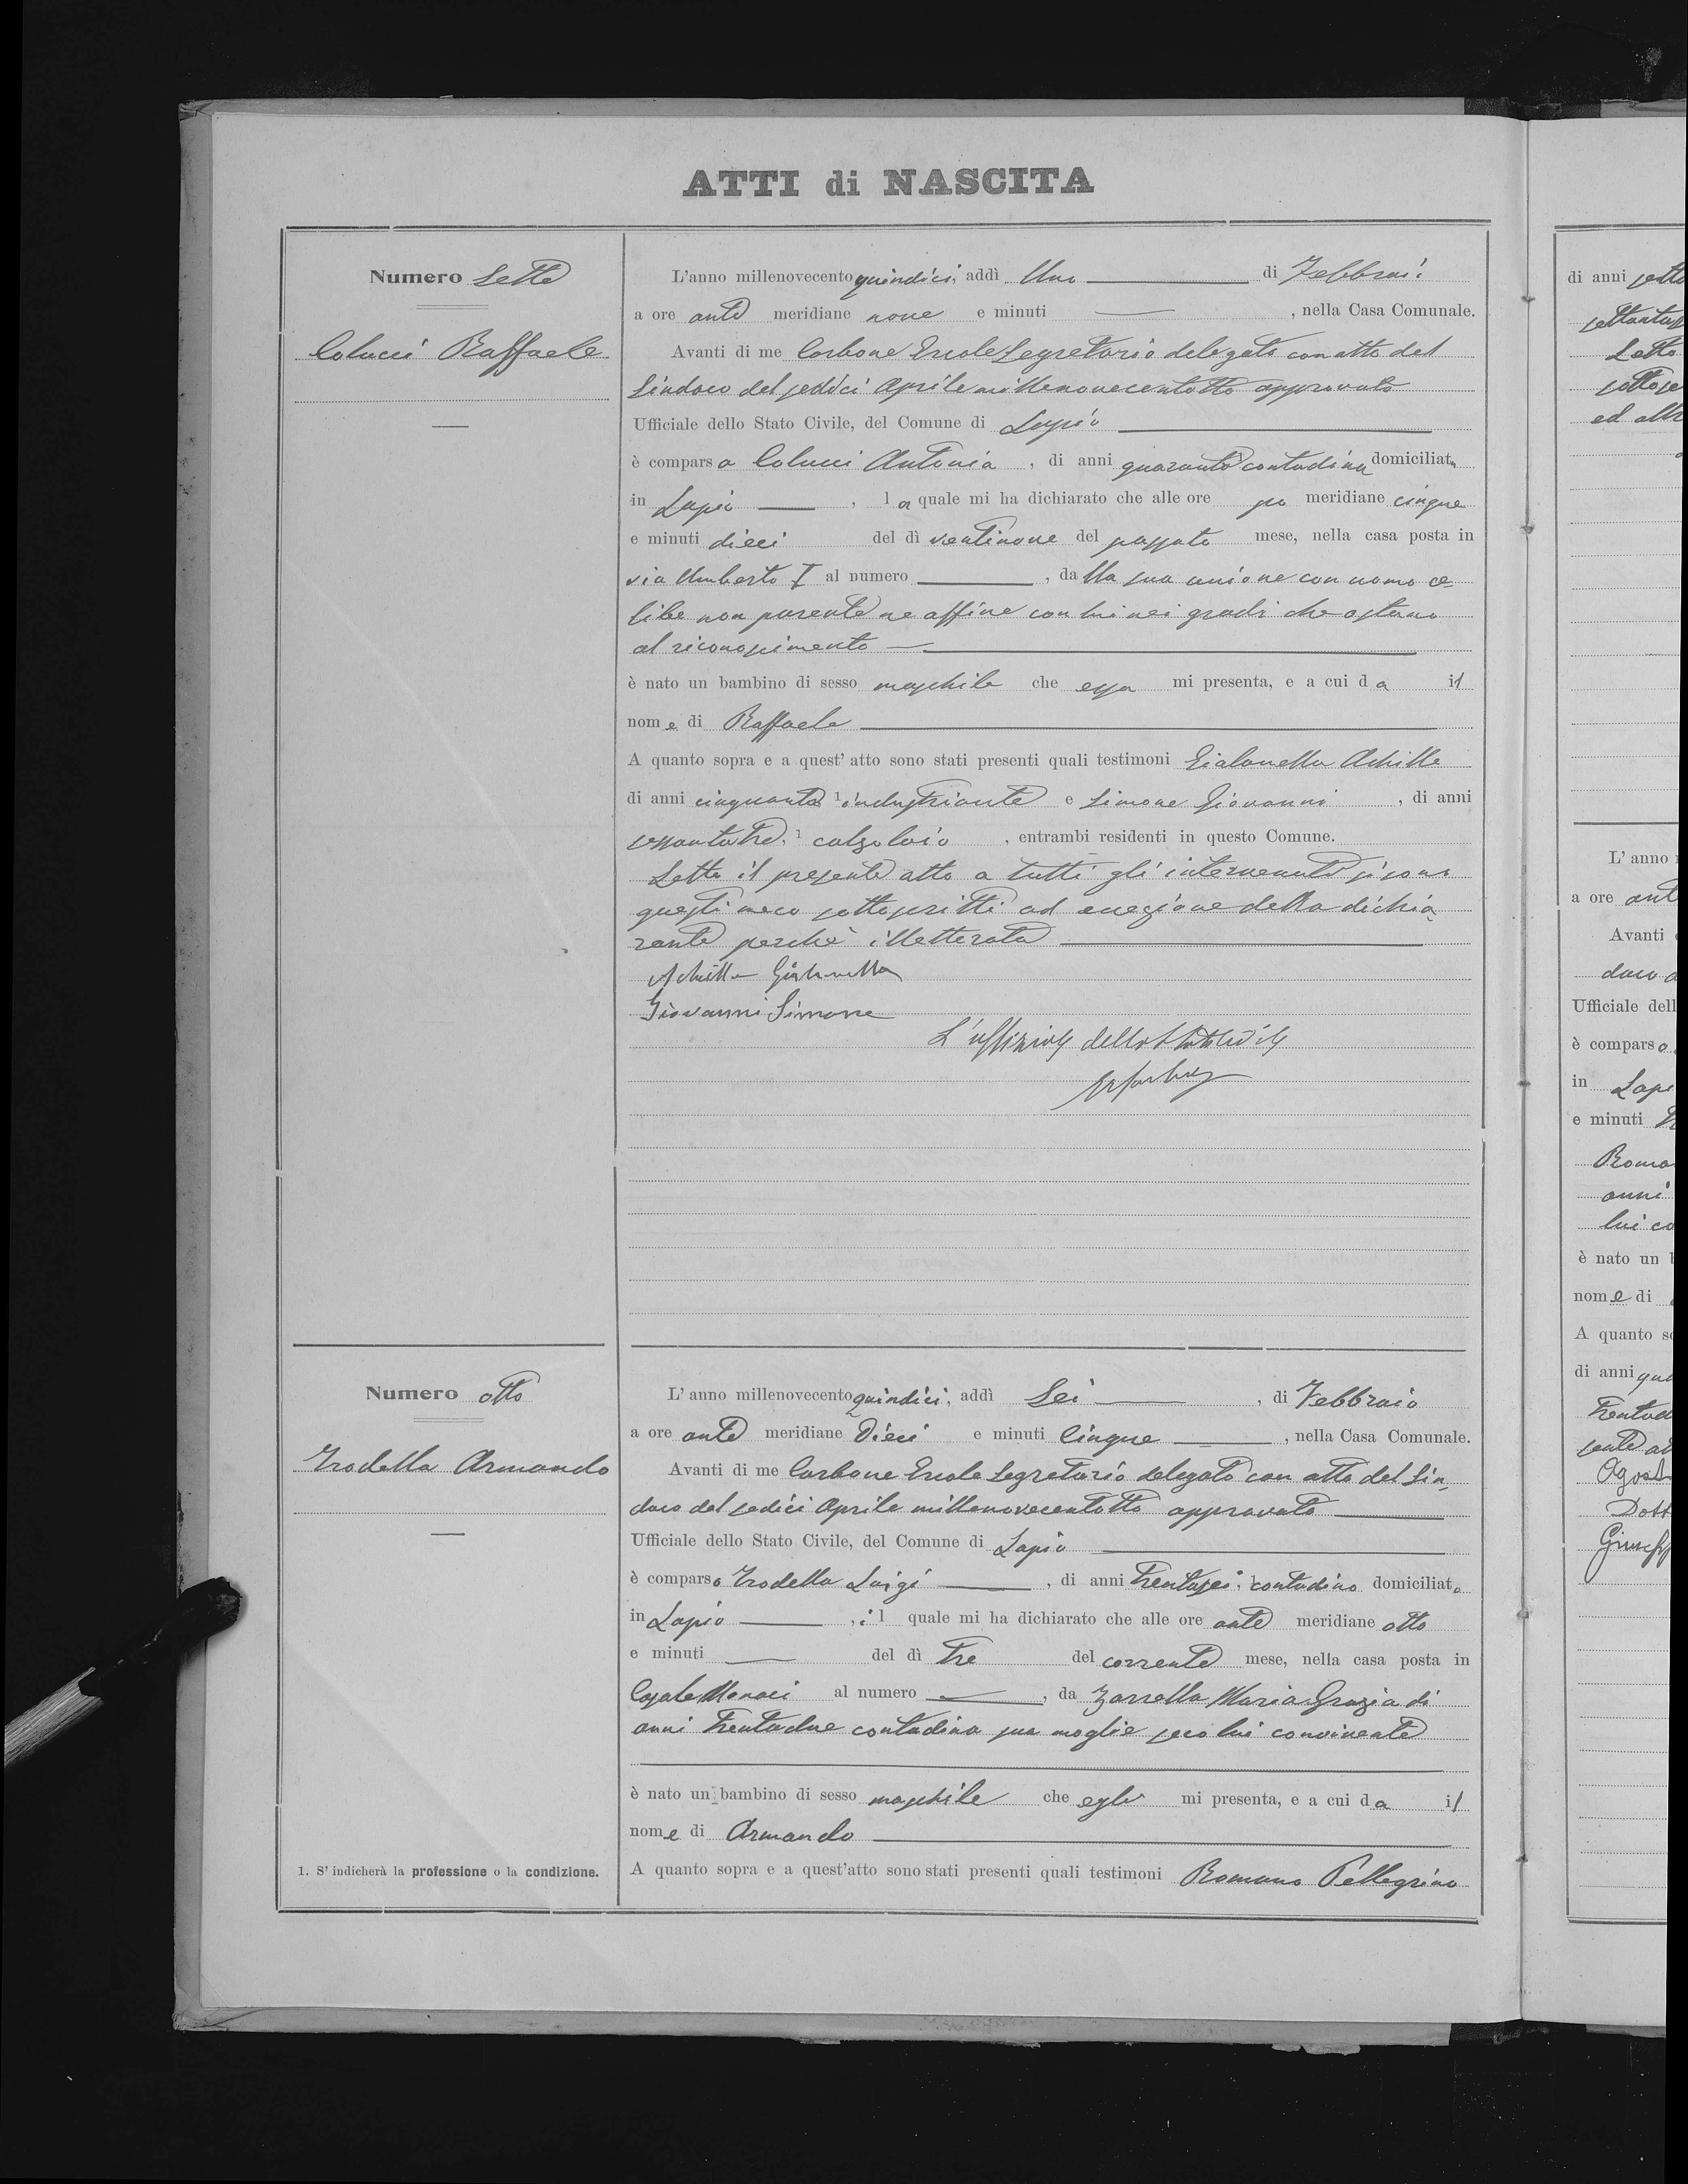 ATTI di NASCITA
Numero Sette
Colucci Raffaele
L'anno millenovecento quindici, addì Uno di Febbrai.
a ore ante meridiane nove e minuti , nella Casa Comunale.
Avanti di me Carbone Ercole Segretario delegato con atto del
Sindaco del sedici Aprile millenovecentotto approvato
Ufficiale dello Stato Civile, del Comune di Lapio
è comparsa Colucci Antonia , di anni quaranta contadina domiciliata
in Lapio , la quale mi ha dichiarato che alle ore po meridiane cinque
e minuti dieci del dì ventinove del passato mese, nella casa posta in
via Umberto I al numero , dalla sua unione con uomo ce-
libe non parente ne affine con lui nei gradi che ostano
al riconoscimento
è nato un bambino di sesso maschile che essa mi presenta, e a cui da il
nome di Raffaele
A quanto sopra e a quest' atto sono stati presenti quali testimoni Gialanella Achille
di anni cinquanta 1 industriante e Simone Giovanni , di anni
sessantatre, 1 calzolaio , entrambi residenti in questo Comune.
Letto il presente atto a tutti gli intervenuti si sono
questi meco sottoscritti ad eccezione della dichia
rante perchè illetterata
Achille Gialanella
Giovanni Simone
L'uffiziale dello Stato Civile
Numero otto
Trodella Armando
L' anno millenovecento quindici, addì Sei , di Febbraio
a ore ante meridiane Dieci e minuti Cinque , nella Casa Comunale.
Avanti di me Carbone Ercole Segretario delegato con atto del Sin-
daco del sedici Aprile millenovecentotto approvato
Ufficiale dello Stato Civile, del Comune di Lapio
è comparso Trodella Luigi , di anni trentasei, 1 contadino domiciliato
in Lapio , il quale mi ha dichiarato che alle ore ante meridiane otto
e minuti del dì tre del corrente mese, nella casa posta in
Casale Monaci al numero , da Zarrella Maria Grazia di
anni trentadue contadina sua moglie seco lui convivente
è nato un bambino di sesso maschile che egli mi presenta, e a cui da il
nome di Armando
1. S' indicherà la professione o la condizione.
A quanto sopra e a quest'atto sono stati presenti quali testimoni Romano Pellegrino
di anni
ed altr
L' anno
a ore ante
Avanti
daco
Ufficiale dell
è comparso
in Lapi
e minuti
Roma
anni
lui co
è nato un b
nome di
A quanto so
di anni qua
Agost
Dott
Giusepp